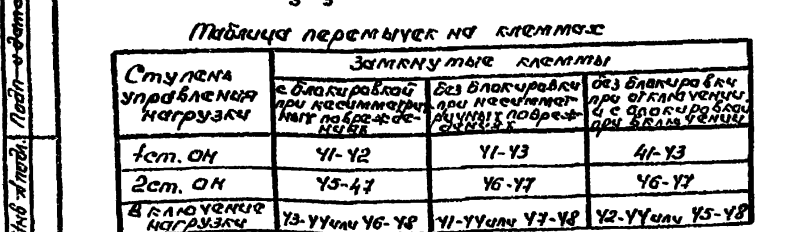 Таблица перемычек на клеммах
Ступень управления нагрузки
Замкнутые клеммы
с блокировкой при несимметричных повреждениях
без блокировки при несимметричных повреждениях
без блокировки при отключении, и с блокировкой при включении
1ст. ОН
41-42
41-43
41-43
2ст. ОН
45-47
46-47
46-47
Включение нагрузки
43-44 или 46-48
41-44 или 47-48
42-44 или 45-48
Подп. и дата